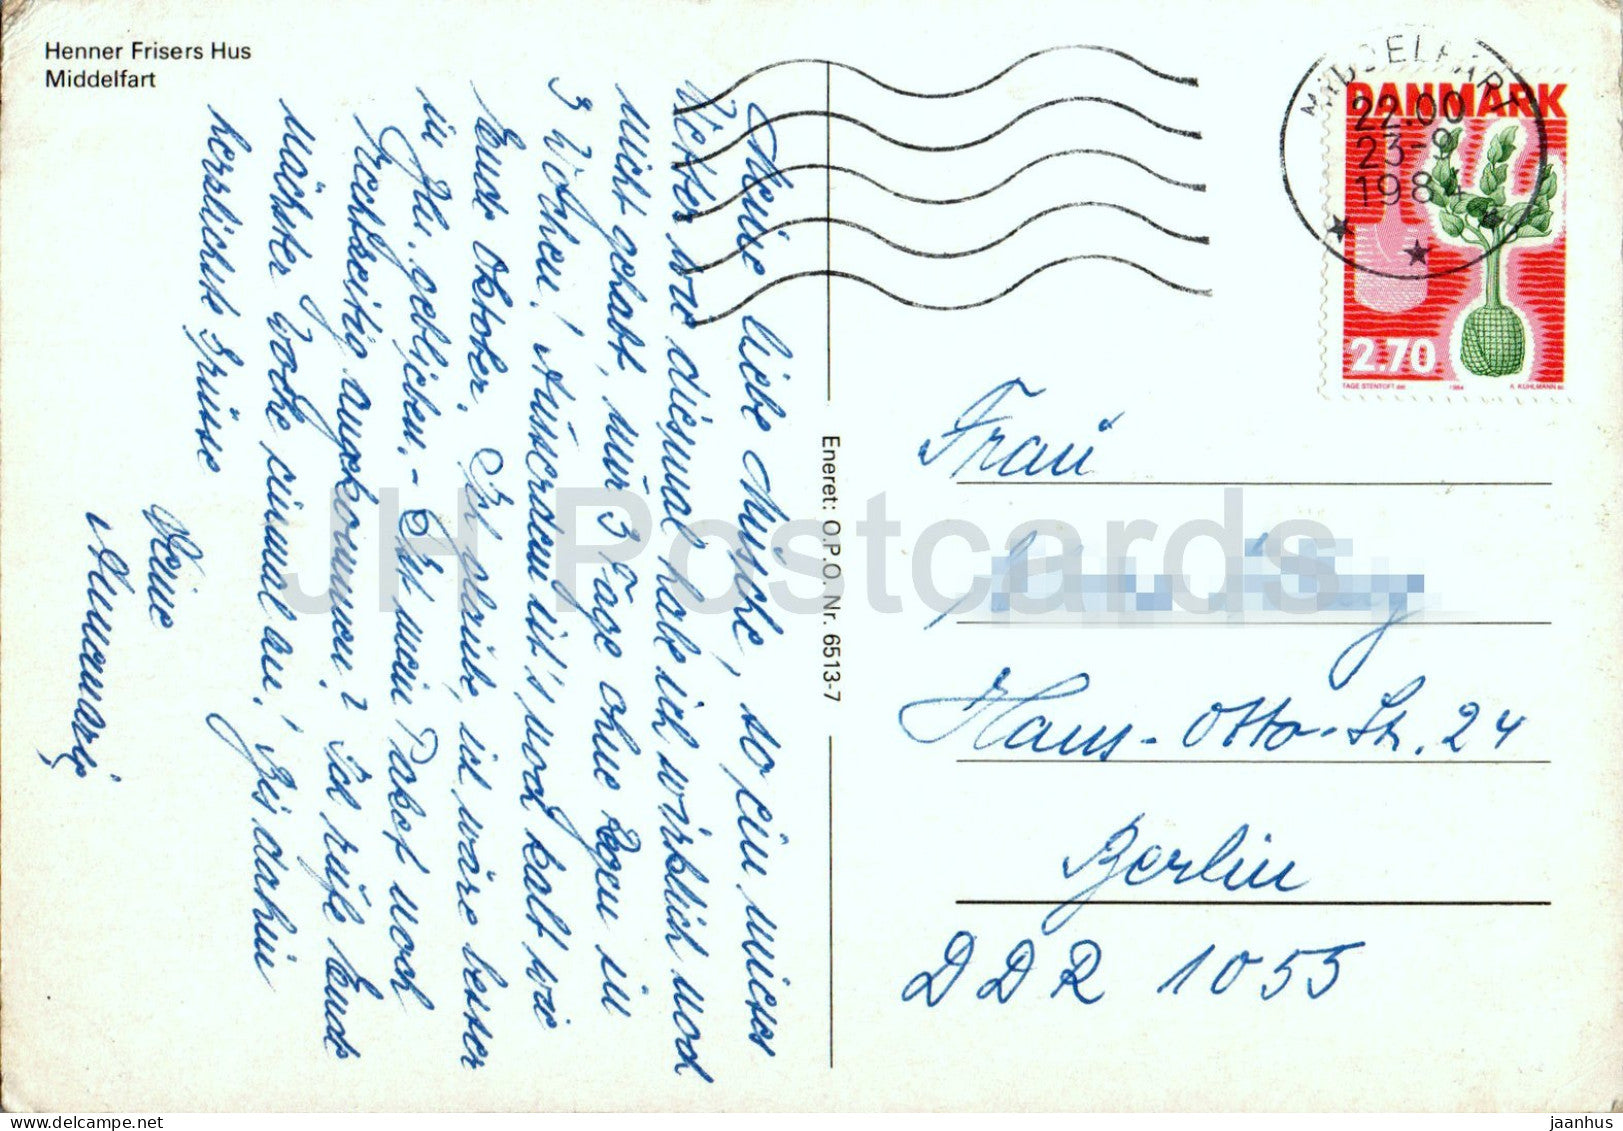 Henner Frisers Hus
Middelfart
Meine liebe Muschi, so ein mieses
Wetter wie diesmal habe ich wirklich noch
nicht gehabt, nur 3 Tage ohne Regen in
3 Wochen! Ausserdem ist's noch kalt wie
Ende Oktober. Ich glaube, ich wäre besser
in geblieben. - Ist mein Paket noch
rechtzeitig angekommen? Ich rufe Ende
nächster Woche einmal an! Bis dahin
herzlichste Grüsse
Deine
Annemarie
Eneret: O.P.O. Nr. 6513-7
MIDDELFART
22.00
23-9
1984
DANMARK
2.70
TAGE STENTOFT 1984 A. KUHLMANN
Frau
Hans-Otto-Str. 24
Berlin
DDR 1055
JH Postcards
delcampe.net
jaanhus